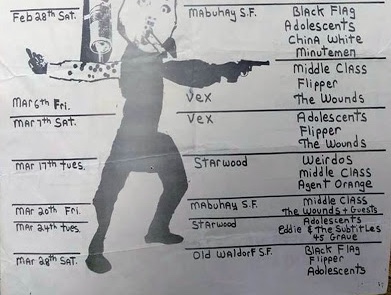 Feb 28th Sat. Mabuhay S.F. Black Flag
Adolescents
China White
Minutemen
Mar 6th Fri. Vex Middle Class
Flipper
The Wounds
Mar 7th Sat. Vex Adolescents
Flipper
The Wounds
Mar 17th tues. Starwood Weirdos
Middle Class
Agent Orange
Mar 20th Fri. Mabuhay S.F. Middle Class
The Wounds + Guests
Mar 24th tues. Starwood Adolescents
Eddie & the Subtitles
45 Grave
Mar 28th Sat. Old Waldorf S.F. Black Flag
Flipper
Adolescents